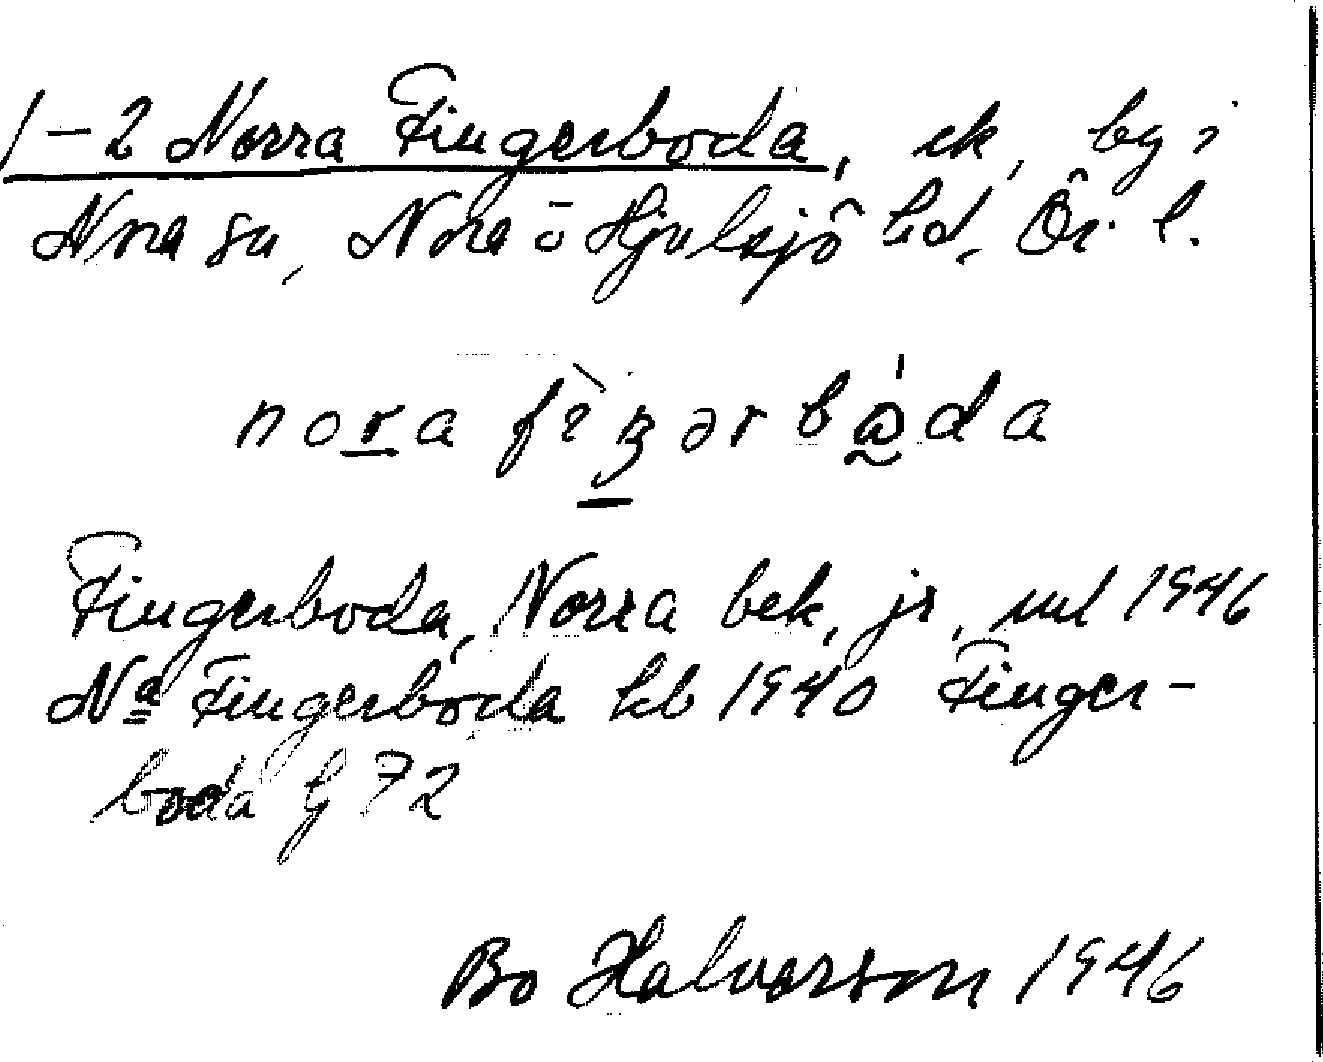 1-2 Norra Fingerboda, ek, by i
Nora sn, Nora ō Hjulsjö bd, Ör. l.
nora fìŋərbå̀da
Fingerboda, Norra bek, jr, ml 1946
Nª Fingerboda kb 1940 Finger-
boda G 72
Bo Halvarson 1946